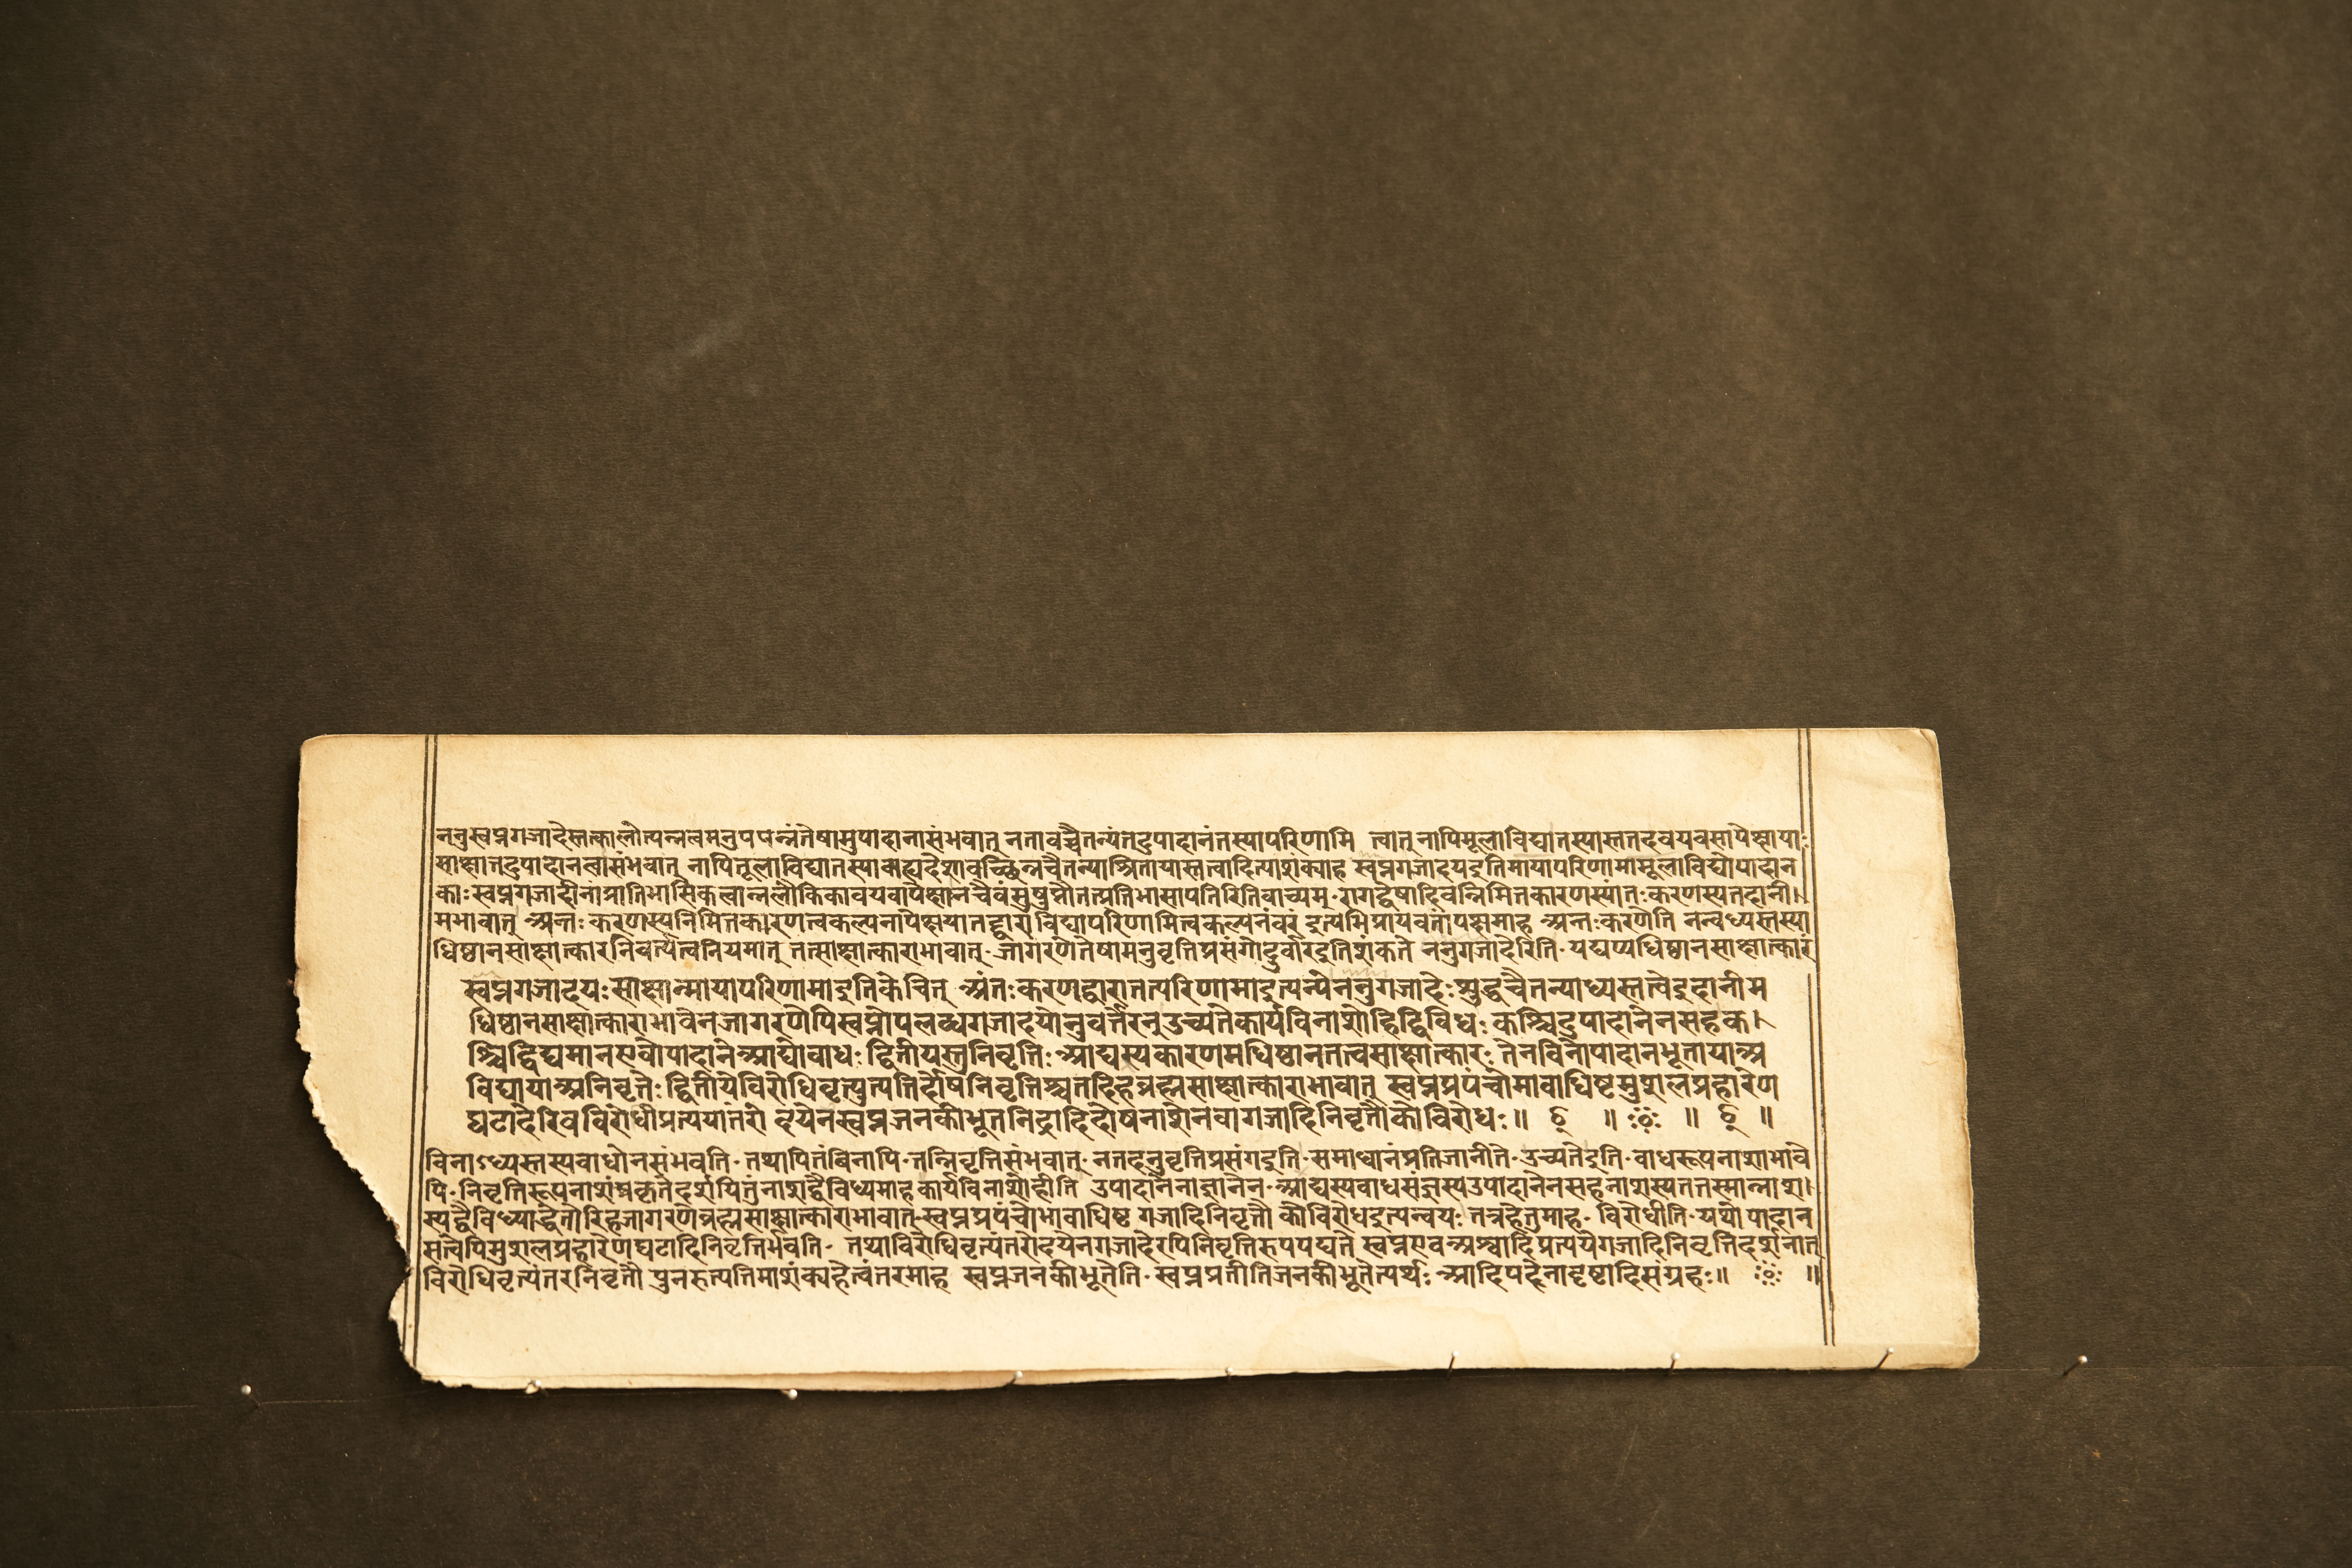 ननुस्वप्नगजादेस्तत्कालोत्पन्नत्वमनुपपन्नंतेषामुपादानासंभवात् नतावच्चैतन्यंतदुपादानंतस्यापरिणामि त्वात् नापिमूलाविद्यातस्यास्ततदवयवसापेक्षाया:
साक्षात्तदुपादानत्वासंभवात् नापितूलाविद्यातस्याबाह्यदेशावच्छिन्नचैतन्याश्रितायास्तत्वादित्याशंक्याह स्वप्नगजादयइतिमायापरिणामामूलाविद्योपादान
काःस्वप्नगजादीनांप्रातिभासिकत्वान्नलौकिकावयवापेक्षानचैवंसुषुप्तौतत्प्रतिभासापतिरितिवाच्यम्·रागद्वेषादिवन्निमित्तकारणस्यांतःकरणस्यतदानी।
मभावात् अन्तःकरणस्यनिमित्तकारणत्वकल्पनापेक्षयातद्द्वाराविद्यापरिणामित्वकल्पनंवरं इत्यभिप्रायवतांपक्षमाह अन्तःकरणेति नन्वध्यस्तस्या
धिष्ठानसाक्षात्कारनिवर्त्यत्वनियमात् तत्साक्षात्काराभावात्·जागरणेतेषामनुवृत्तिप्रसंगोदुर्वारइतिशंकते ननुगजादेरिति·यद्यप्यधिष्ठानसाक्षात्कारं
स्वप्नगजादयःसाक्षान्मायापरिणामाइतिकेचित् अंतःकरणद्वारातत्परिणामाइत्यन्येननुगजादेःशुद्धचैतन्याध्यस्तत्वेइदानीम
धिष्ठानसाक्षात्काराभावेनजागरणेपिस्वप्नोपलब्धगजादयोनुवर्त्तेरन्उच्यतेकार्यविनाशोहिद्विविधः कश्चिदुपादानेनसहक।
श्चिद्विद्यमानएवोपादानेआद्योबाधः द्वितीयस्तुनिवृत्तिःआद्यस्यकारणमधिष्ठानतत्वसाक्षात्कारः तेनविनोपादानभूतायाअ
विद्यायाअनिवृत्तेः द्वितीयेविरोधिवृत्त्युत्पत्तिर्दोषनिवृत्तिश्चतदिहब्रह्मसाक्षात्काराभावात् स्वप्नप्रपंचोमाबाधिष्टमुशलप्रहारेण
घटादेरिवविरोधीप्रत्ययांतरो दयेनस्वप्नजनकीभूतनिद्रादिदोषनाशेनवागजादिनिवृत्तौकोविरोधः॥ छ् ॥ ॥ छ् ॥
विनाऽध्यस्तस्यबाधोनसंभवति·तथापितंविनापि·तन्निवृत्तिसंभवात्·नतदनुवृत्तिप्रसंगइति·समाधानंप्रतिजानीते·उच्यतेइति·बाधरूपनाशाभावे
पि·निवृत्तिरूपनाशंप्रकृतेदर्शयितुंनाशद्वैविध्यमाह कार्यविनाशोहीति उपादानेनाज्ञानेन·आद्यस्यबाधसंज्ञस्यउपादानेनसहनाशस्यततस्मान्नाश।
स्यद्वैविध्याद्धेतोरिहजागरणेब्रह्मसाक्षात्काराभावात्·स्वप्नप्रपंचोभाबाधिष्ट गजादिनिवृत्तौ कोविरोधइत्यन्वयः तत्रहेतुमाह·विरोधीति·यथोपादान
सत्वेपिमुशलप्रहारेणघटादिनिवृत्तिर्भवति· तथाविरोधिवृत्यंतरोदयेनगजादेरपिनिवृत्तिरुपपद्यते स्वप्नएवअश्वादिप्रत्ययेगजादिनिवृत्तिदर्शनात्
विरोधिवृत्यंतरनिवृत्तौ पुनरुत्पत्तिमाशंक्यहेत्वंतरमाह स्वप्नजनकीभूतेति·स्वप्नप्रतीतिजनकीभूतेत्यर्थः आदिपदेनादृष्टादिसंग्रहः॥ ॥